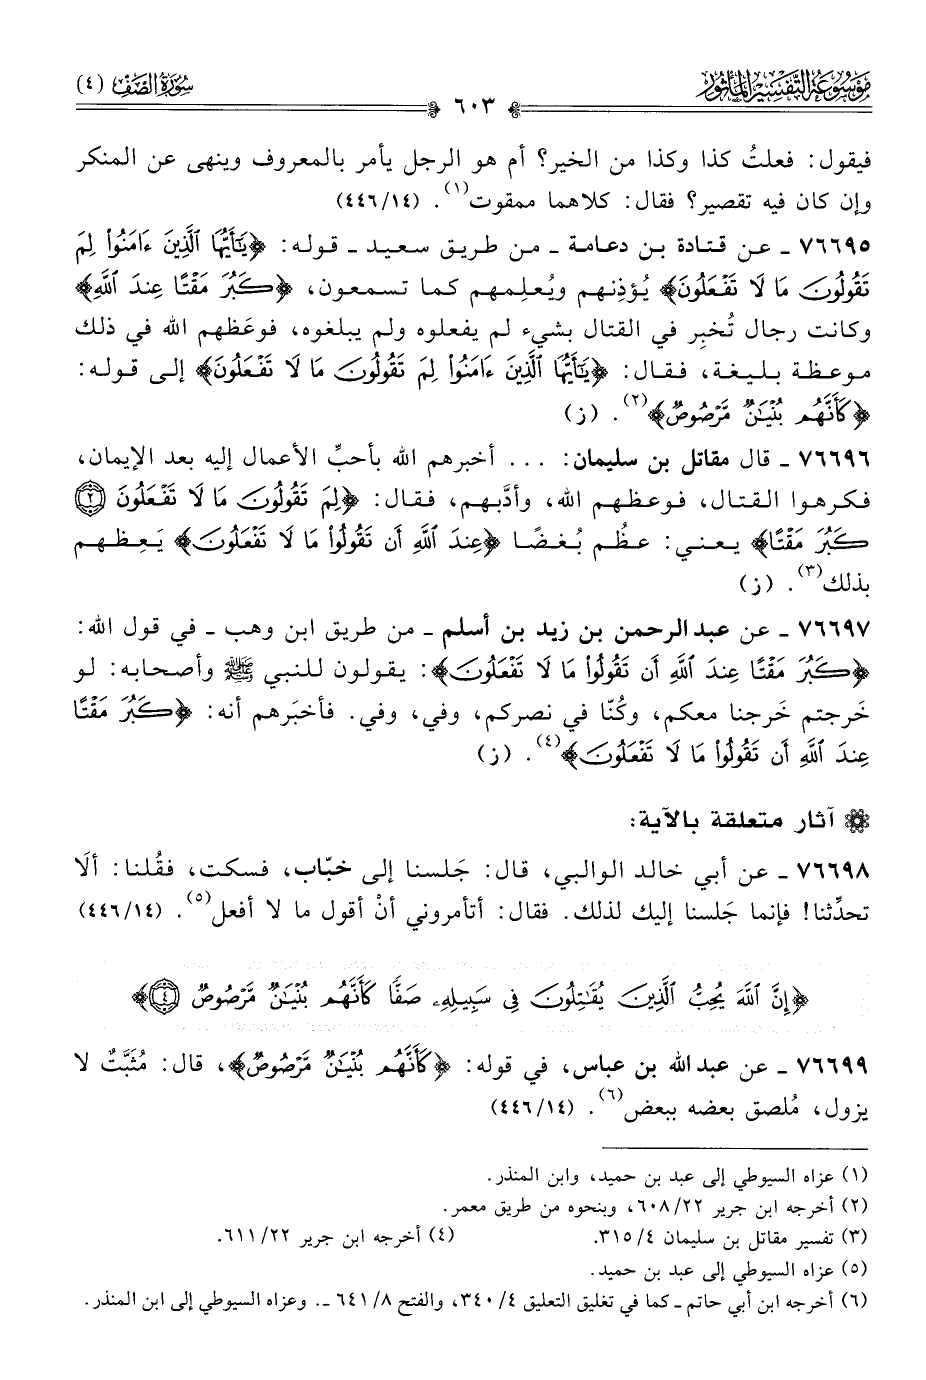 موسوعة التفسير المأثور
سورة الصف (٤)
٦٠٣
فيقول: فعلتُ كذا وكذا من الخير؟ أم هو الرجل يأمر بالمعروف وينهى عن المنكر
وإن كان فيه تقصير؟ فقال: كلاهما ممقوت(١). (٤٤٦/١٤)
٧٦٦٩٥ ـ عن قتادة بن دعامة ـ من طريق سعيد ـ قوله: ﴿يَٰٓأَيُّهَا ٱلَّذِينَ ءَامَنُوا۟ لِمَ
تَقُولُونَ مَا لَا تَفْعَلُونَ﴾ يُؤذِنهم ويُعلِمهم كما تسمعون، ﴿كَبُرَ مَقْتًا عِندَ ٱللَّهِ﴾
وكانت رجال تُخبِر في القتال بشيء لم يفعلوه ولم يبلغوه، فوعَظهم الله في ذلك
موعظة بليغة، فقال: ﴿يَٰٓأَيُّهَا ٱلَّذِينَ ءَامَنُوا۟ لِمَ تَقُولُونَ مَا لَا تَفْعَلُونَ﴾ إلى قوله:
﴿كَأَنَّهُم بُنْيَٰنٌ مَّرْصُوصٌ﴾(٢). (ز)
٧٦٦٩٦ ـ قال مقاتل بن سليمان: ... أخبرهم الله بأحبِّ الأعمال إليه بعد الإيمان،
فكرهوا القتال، فوعظهم الله، وأدَّبهم، فقال: ﴿لِمَ تَقُولُونَ مَا لَا تَفْعَلُونَ ۝٢
كَبُرَ مَقْتًا﴾ يعني: عظُم بُغضًا ﴿عِندَ ٱللَّهِ أَن تَقُولُوا۟ مَا لَا تَفْعَلُونَ﴾ يَعِظهم
بذلك(٣). (ز)
٧٦٦٩٧ ـ عن عبد الرحمن بن زيد بن أسلم ـ من طريق ابن وهب ـ في قول الله:
﴿كَبُرَ مَقْتًا عِندَ ٱللَّهِ أَن تَقُولُوا۟ مَا لَا تَفْعَلُونَ﴾: يقولون للنبي ﷺ وأصحابه: لو
خَرجتم خَرجنا معكم، وكُنّا في نصركم، وفي، وفي. فأخبَرهم أنه: ﴿كَبُرَ مَقْتًا
عِندَ ٱللَّهِ أَن تَقُولُوا۟ مَا لَا تَفْعَلُونَ﴾(٤). (ز)
آثار متعلقة بالآية:
٧٦٦٩٨ ـ عن أبي خالد الوالبي، قال: جَلسنا إلى خبّاب، فسكت، فقُلنا: ألَا
تحدِّثنا! فإنما جَلسنا إليك لذلك. فقال: أتأمروني أنْ أقول ما لا أفعل(٥). (٤٤٦/١٤)
﴿إِنَّ ٱللَّهَ يُحِبُّ ٱلَّذِينَ يُقَٰتِلُونَ فِى سَبِيلِهِۦ صَفًّا كَأَنَّهُم بُنْيَٰنٌ مَّرْصُوصٌ ۝٤﴾
٧٦٦٩٩ ـ عن عبد الله بن عباس، في قوله: ﴿كَأَنَّهُم بُنْيَٰنٌ مَّرْصُوصٌ﴾، قال: مُثبَّتٌ لا
يزول، مُلصق بعضه ببعض(٦). (٤٤٦/١٤)
(١) عزاه السيوطي إلى عبد بن حميد، وابن المنذر.
(٢) أخرجه ابن جرير ٢٢/ ٦٠٨، وبنحوه من طريق معمر.
(٣) تفسير مقاتل بن سليمان ٤/ ٣١٥. (٤) أخرجه ابن جرير ٢٢/ ٦١١.
(٥) عزاه السيوطي إلى عبد بن حميد.
(٦) أخرجه ابن أبي حاتم ـ كما في تغليق التعليق ٤/ ٣٤٠، والفتح ٨/ ٦٤١ ـ. وعزاه السيوطي إلى ابن المنذر.